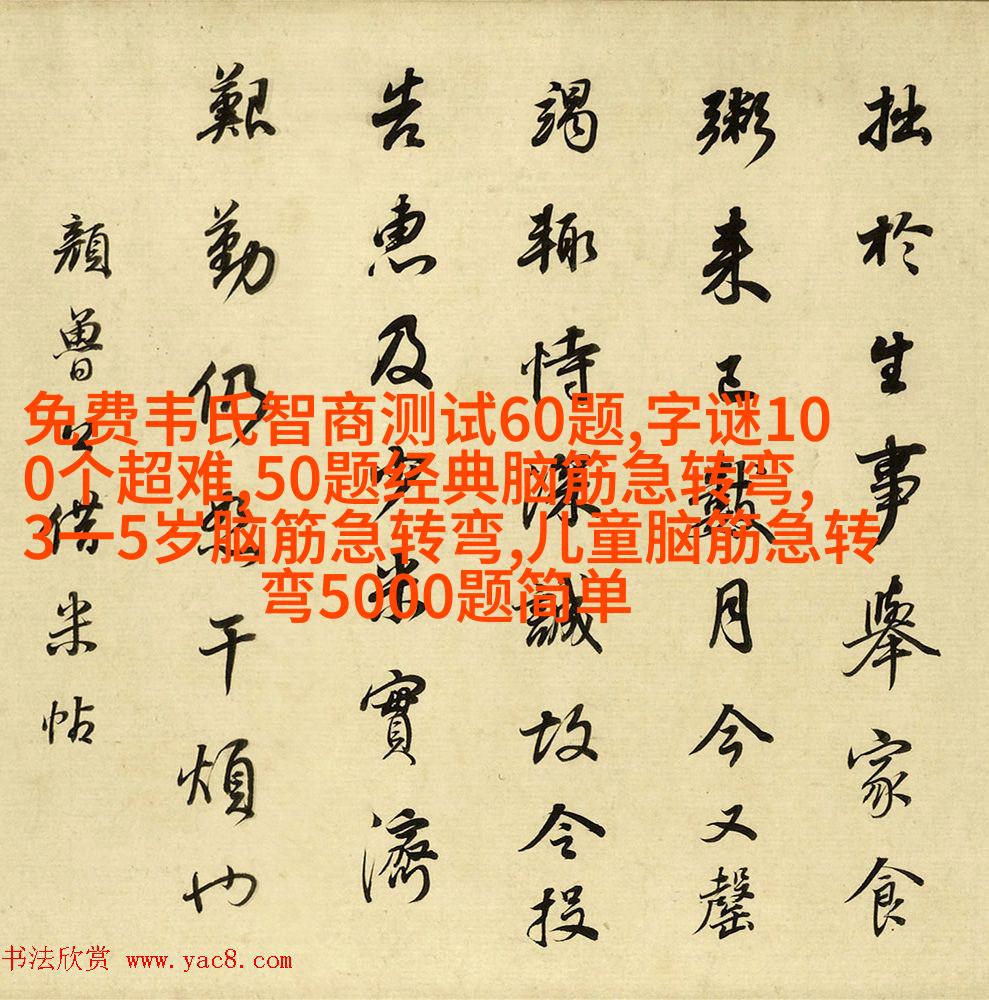 拙於生事舉家食
粥来已數月今又罄
竭輙恃深誠故令投
告惠及少米實濟
艱勤仍恕干煩也
顔魯公借米帖
免费韦氏智商测试60题,字谜10
0个超难,50题经典脑筋急转弯,
3一5岁脑筋急转弯,儿童脑筋急转
弯5000题简单
书法欣赏 www.yac8.com